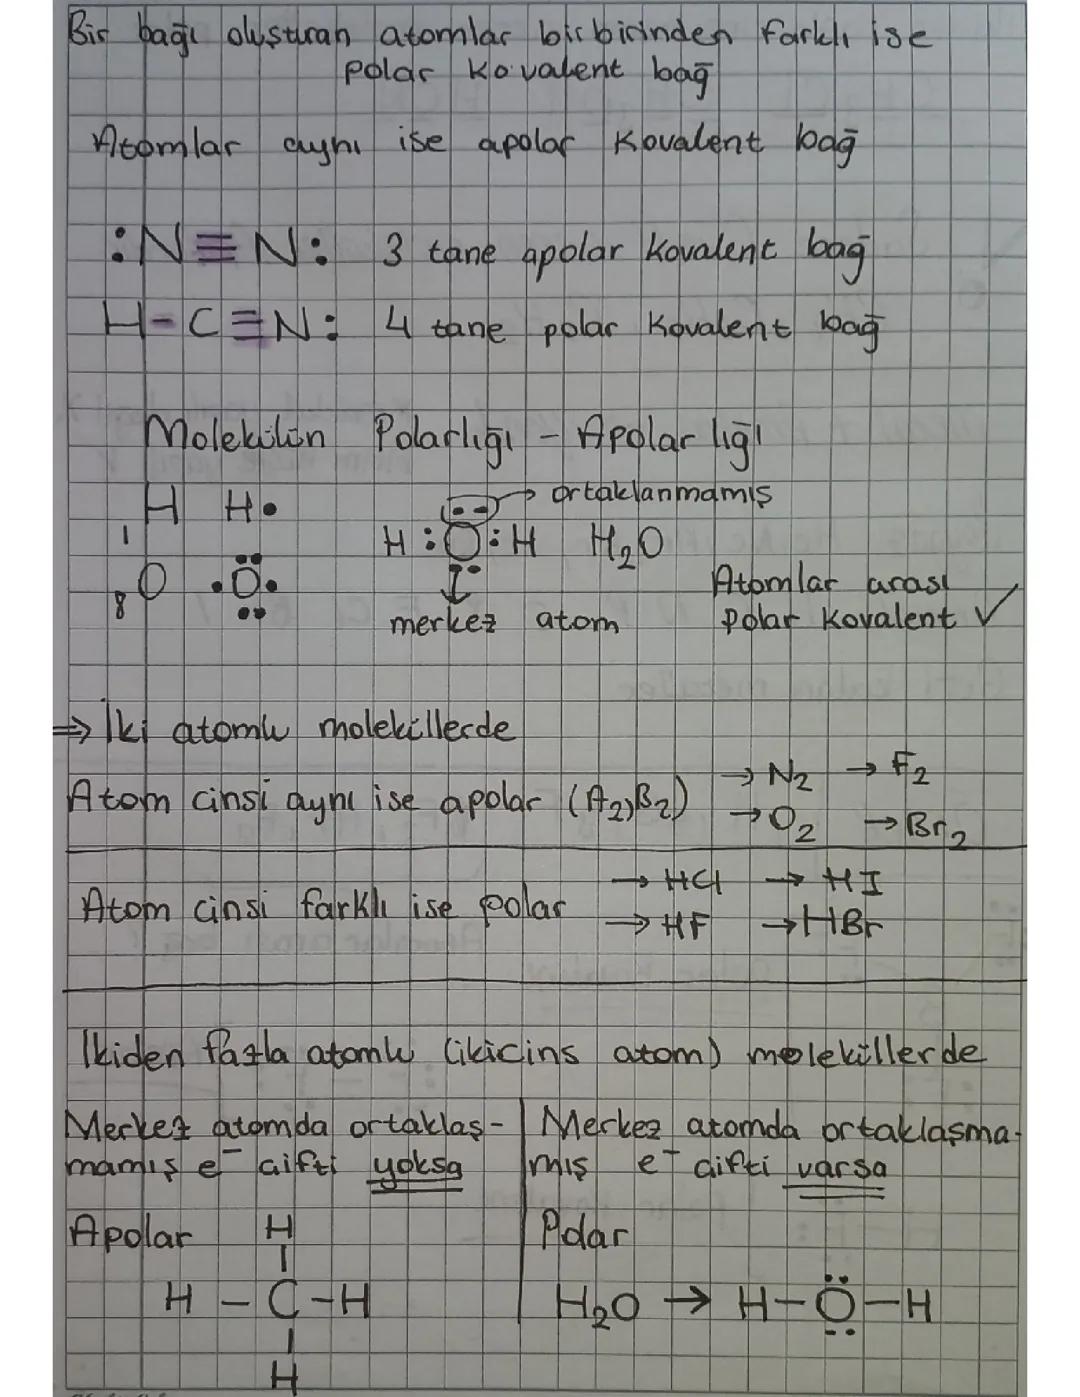 Bir bağı oluşturan atomlar birbirinden farklı ise
polar kovalent bağ
Atomlar aynı ise apolar kovalent bağ
:N≡N: 3 tane apolar kovalent bağ
H-C≡N: 4 tane polar kovalent bağ
Molekülün Polarlığı - Apolarlığı
₁H H• → ortaklanmamış
H:O:H H₂O
₈O •O• Atomlar arası
merkez atom polar kovalent ✓
⇒ İki atomlu moleküllerde
Atom cinsi aynı ise apolar (A₂,B₂) → N₂ → F₂
→ O₂ → Br₂
Atom cinsi farklı ise polar → HCl → HI
→ HF → HBr
İkiden fazla atomlu (iki cins atom) moleküllerde
Merkez atomda ortaklaş-
mamış e⁻ çifti yoksa
Apolar
H
H - C - H
H
Merkez atomda ortaklaşma-
mış e⁻ çifti varsa
Polar
H₂O → H-O-H